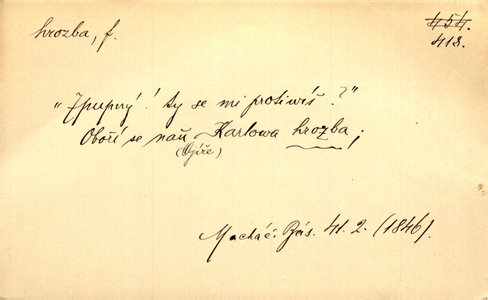 hrozba, f.
454.
418.
„Zpupný! ty se mi protiwíš?"
Oboří se naň Karlowa hrozba;
(Ojíře)
Macháč. Bás. 41. 2. (1846).